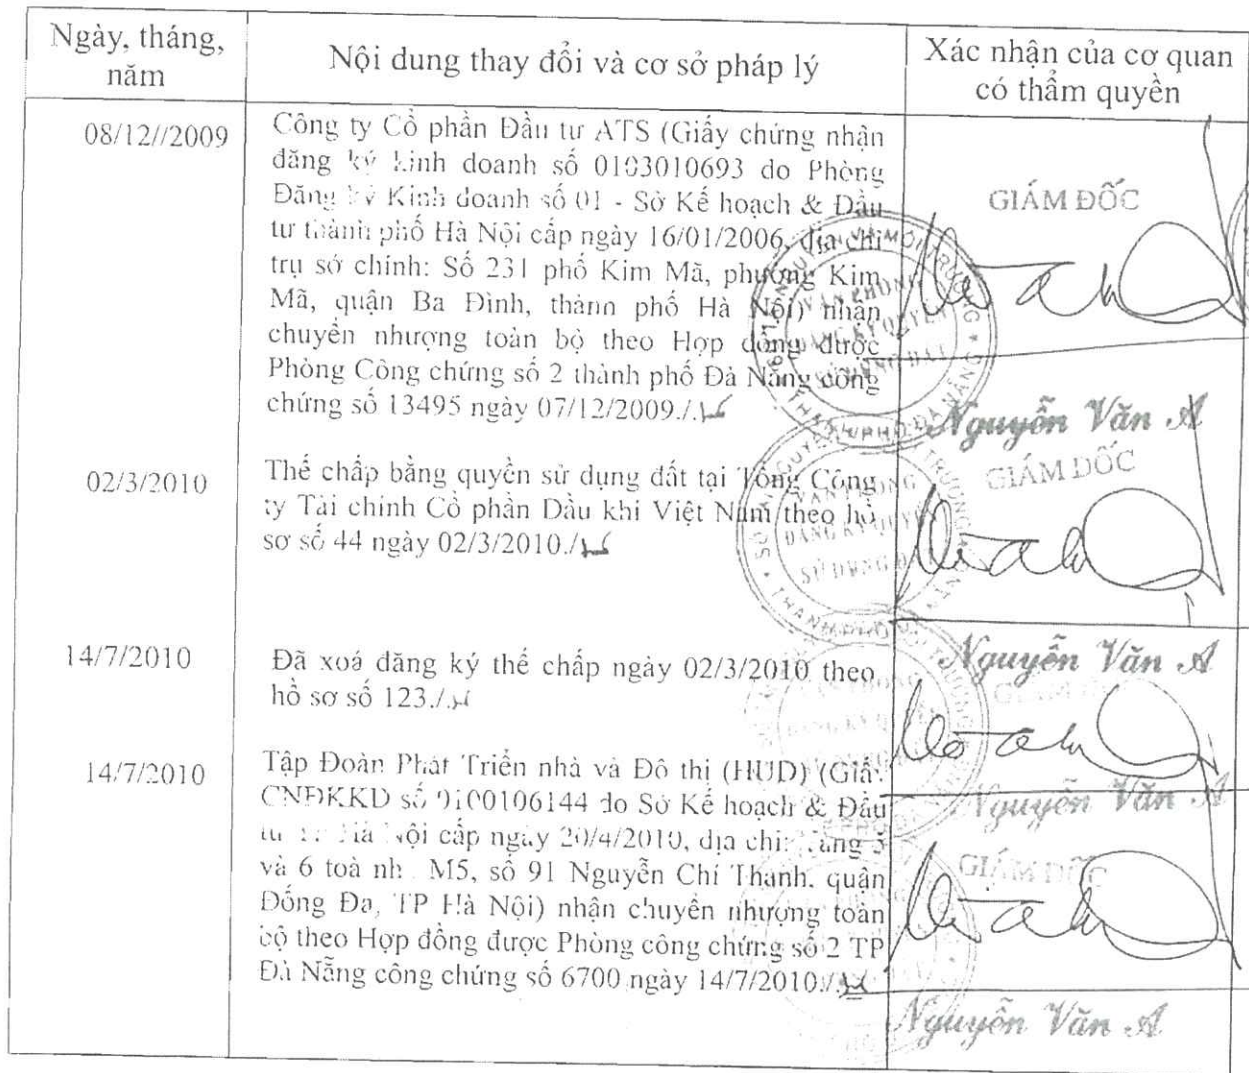 Ngày, tháng,
năm
Nội dung thay đổi và cơ sở pháp lý
Xác nhận của cơ quan
có thẩm quyền
08/12//2009
Công ty Cổ phần Đầu tư ATS (Giấy chứng nhận
đăng ký kinh doanh số 0103010693 do Phòng
Đăng ký Kinh doanh số 01 - Sở Kế hoạch & Đầu
tư thành phố Hà Nội cấp ngày 16/01/2006, địa chỉ
trụ sở chính: Số 231 phố Kim Mã, phường Kim
Mã, quận Ba Đình, thành phố Hà Nội) nhận
chuyển nhượng toàn bộ theo Hợp đồng được
Phòng Công chứng số 2 thành phố Đà Nẵng công
chứng số 13495 ngày 07/12/2009./.
GIÁM ĐỐC
Nguyễn Văn A
02/3/2010
Thế chấp bằng quyền sử dụng đất tại Tổng Công
ty Tài chính Cổ phần Dầu khí Việt Nam theo hồ
sơ số 44 ngày 02/3/2010./
GIÁM ĐỐC
Nguyễn Văn A
14/7/2010
Đã xoá đăng ký thế chấp ngày 02/3/2010 theo
hồ sơ số 123./.
GIÁM ĐỐC
Nguyễn Văn A
14/7/2010
Tập Đoàn Phát Triển nhà và Đô thị (HUD) (Giấy
CNĐKKD số 0100106144 do Sở Kế hoạch & Đầu
tư Hà Nội cấp ngày 20/4/2010, địa chỉ: 5
và 6 toà nhà M5, số 91 Nguyễn Chí Thanh, quận
Đống Đa, TP Hà Nội) nhận chuyển nhượng toàn
bộ theo Hợp đồng được Phòng công chứng số 2 TP
Đà Nẵng công chứng số 6700 ngày 14/7/2010./.
GIÁM ĐỐC
Nguyễn Văn A
VĂN PHÒNG
ĐĂNG KÝ QUYỀN
SỬ DỤNG ĐẤT
THÀNH PHỐ ĐÀ NẴNG